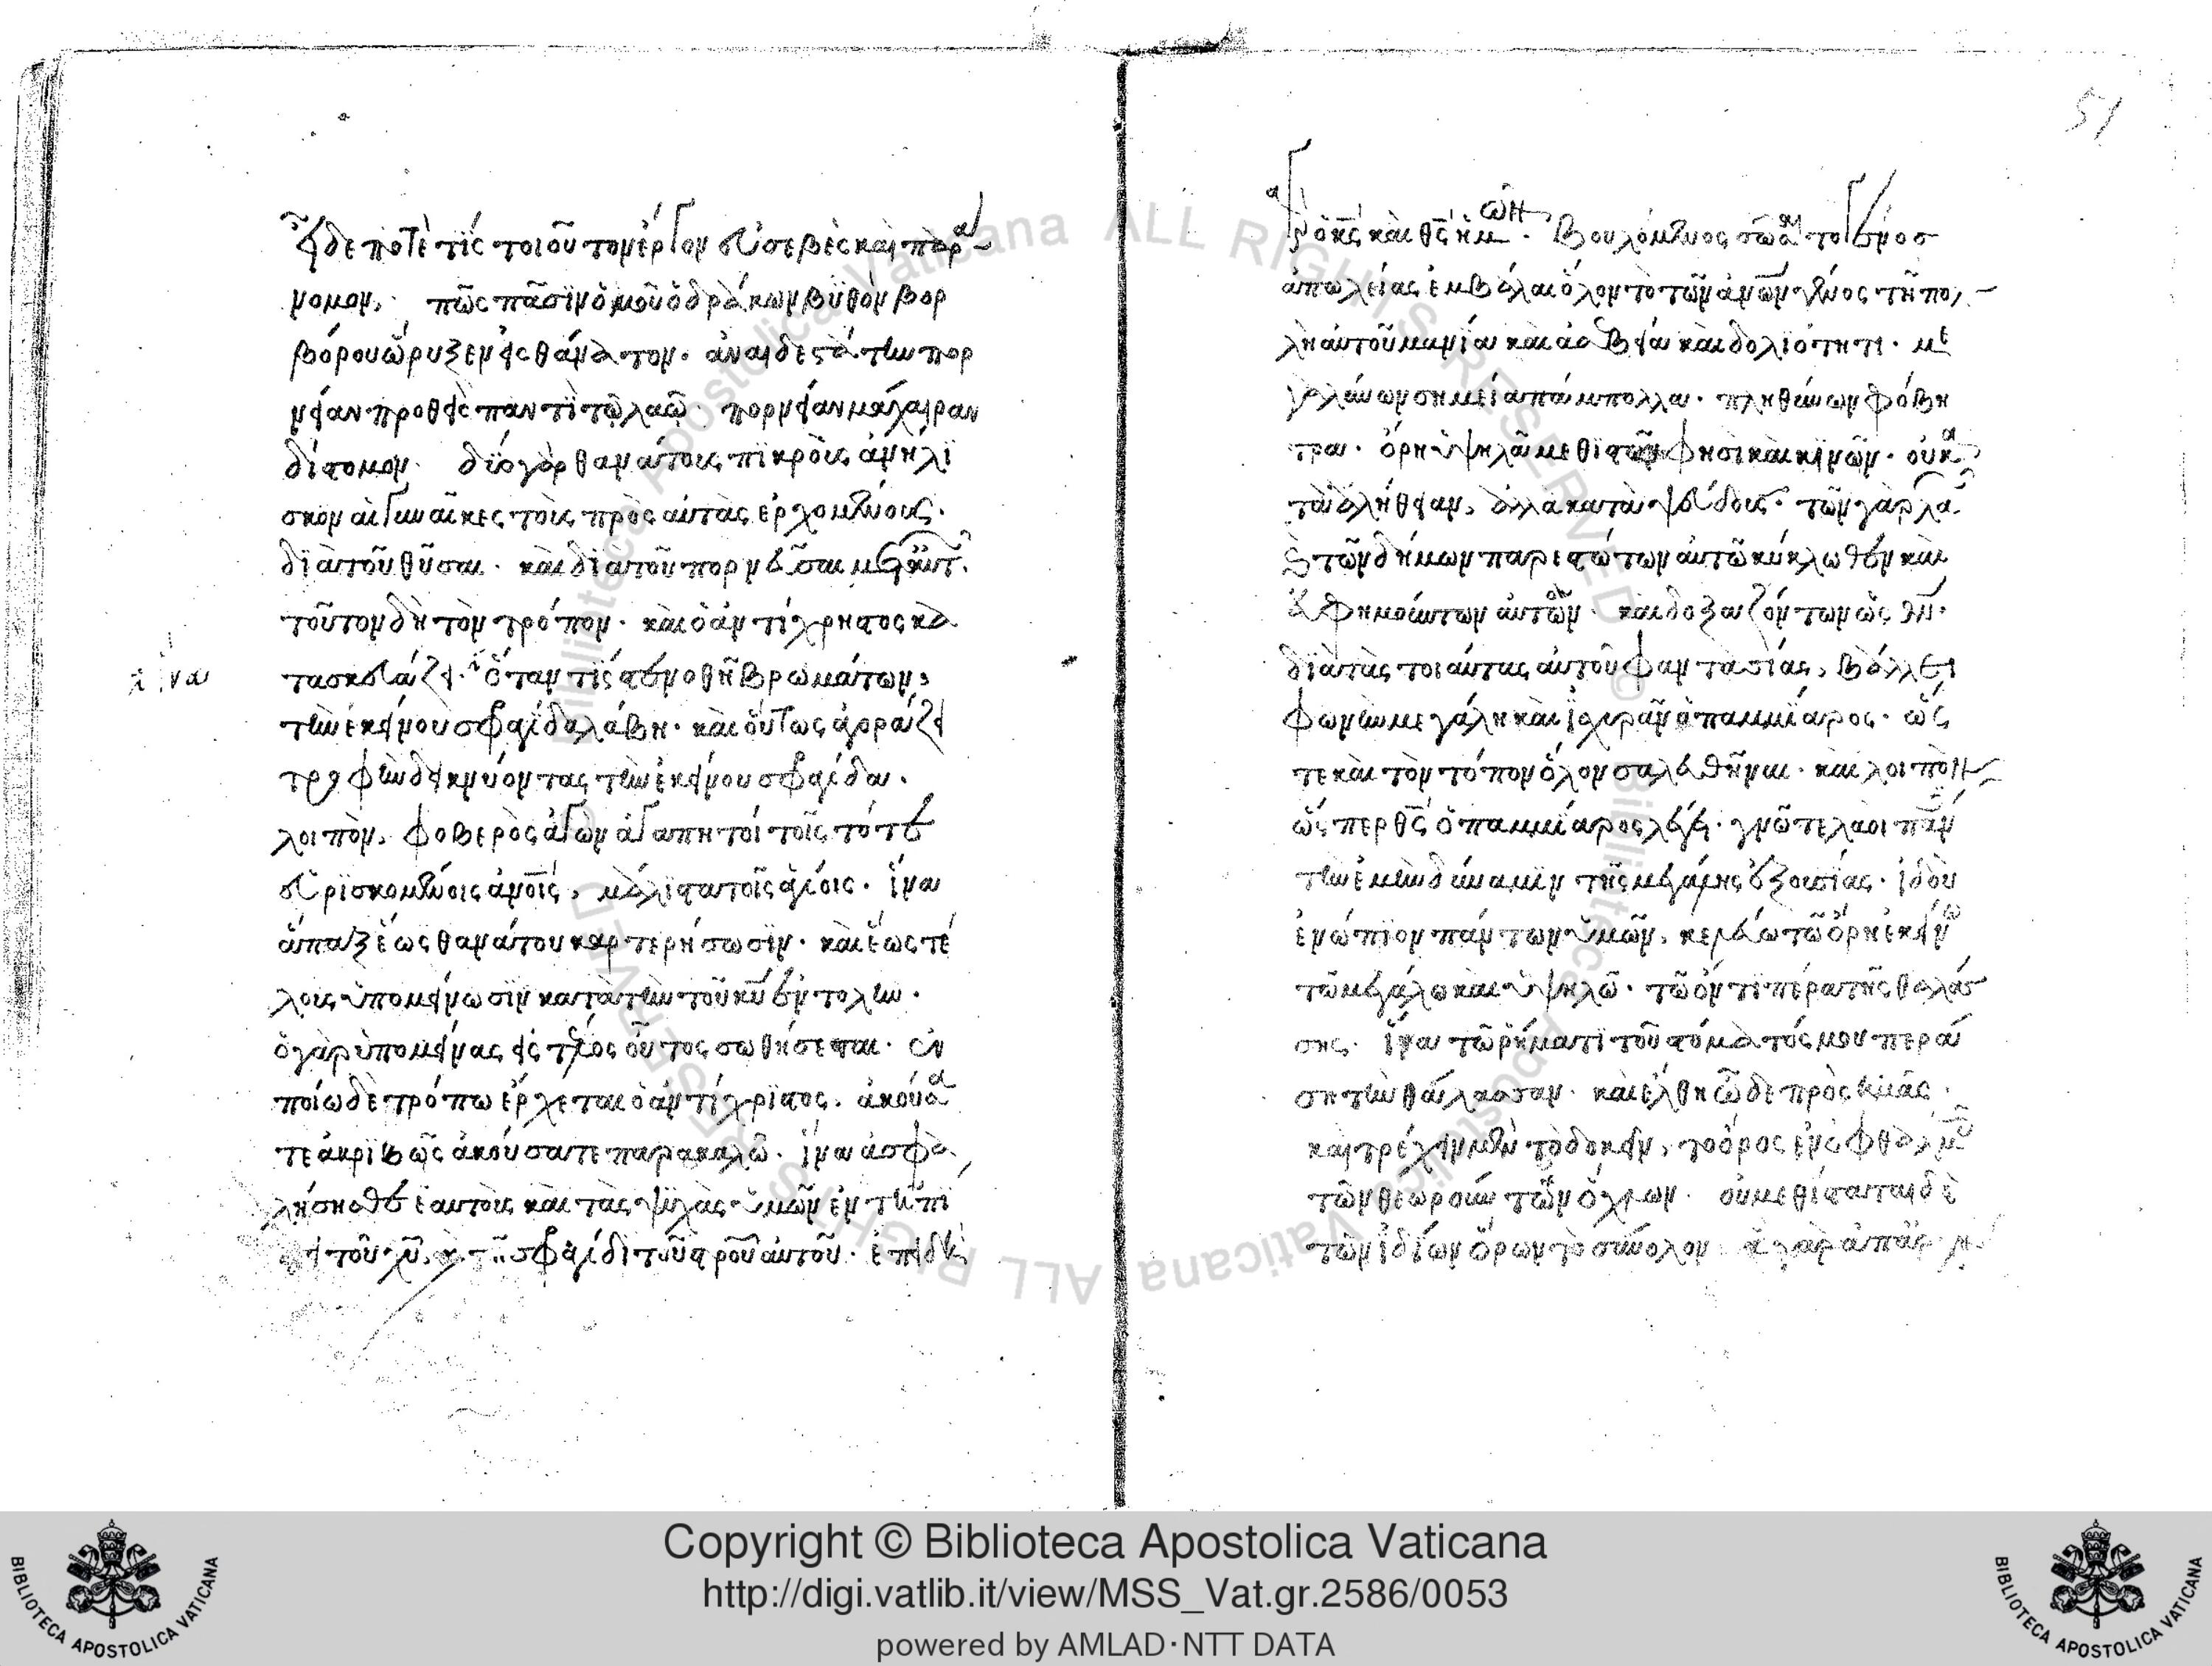 ἴδε ποτὲ τίς τοιοῦτον ἔργον εὐσεβὲς καὶ παρά
νομον, πῶς πᾶσιν ὁμοῦ ὁ δράκων βυθὸν βορ
βόρου ὤρυξεν εἰς θάνατον. ἀναιδεστάτην πορ
νείαν προθεὶς παντὶ τῷ λαῷ. πορνείαν μάχαιραν
δίστομον. δύο γὰρ θανάτους πικροὺς
σκον αἱ γυναῖκες τοὺς πρὸς αὐτὰς ἐρχομένους.
διὰ τοῦ θῦσαι. καὶ διὰ τοῦ πορνεῦσαι
τοῦτον δὴ τὸν τρόπον. καὶ ὁ ἀντίχρηστος κα
τασκευάζει. ὅταν τίς στενοθῇ βρωμάτων,
ἵνα
τὴν ἐκείνου σφραγίδα λάβη. καὶ οὕτως ἀγοράζει
τροφὴν δεικνύοντας τὴν ἐκείνου σφραγίδα.
λοιπὸν, φοβερὸς ἀγὼν ἀγαπητοί τοῖς τότε
εὑρισκομένοις ἀνοις, μάλιστα τοῖς ἁγίοις. ἵνα
ἅπαξ ἕως θανάτου καρτερήσωσιν. καὶ ἕως τέ
λους ὑπομείνωσιν κατὰ τὴν τοῦ κυ ἐντολήν.
ὁ γὰρ ὑπομείνας εἰς τέλος οὗτος σωθήσεται. ἐν
ποίω δὲ τρόπω ἔρχεται ὁ ἀντίχριστος. ἀκούσα
τε ἀκριβῶς ἀκούσατε παρακαλῶ. ἵνα ἀσφα
λήσησθε ἑαυτοὺς καὶ τὰς ψυχὰς ὑμῶν ἐν τῇ πί
στει τοῦ χυ, κ τῇ σφραγίδι τοῦ στρου αὐτοῦ. ἐπειδὴ
51
ὁ κς καὶ θς ἡμῶν. βουλόμενος σῶσαι τὸ γένος
ἀπωλείας ἐμβάλαι ὅλον τὸ τῶν ἀνων γένος τῇ πολ
λῇ αὐτοῦ μανία καὶ ἀσεβεία καὶ δολιότητι. με
γαλύνων σημεία πάμπολλα. πληθύνων φόβη
τρα. ὄρη ὑψηλὰ μεθιστῶν φησὶ καὶ κινῶν. οὐ κα
τὰ ἀλήθειαν, ἀλλὰ κατὰ ψεῦδους. τῶν γὰρ λα
ῶν κ τῶν δήμων παρεστώτων αὐτῶ κύκλωθεν καὶ
εὐφημούντων αὐτὸν. καὶ δοξαζόντων ὡς θν.
διὰ τὰς τοιαύτας αὐτοῦ φαντασίας, βάλλει
φωνὴν μεγάλην καὶ ἰσχυρὰν ὁ παμμίαρος. ὥς
τε καὶ τὸν τόπον ὅλον σαλευθῆναι. καὶ λοιπὸν
ὥσπερ θς ὁ παμμίαρος λέγει. γνῶτε λαοι πάν
τὴν ἐμὴν δύναμιν τῆς μεγάλης ἐξουσίας. ἰδοὺ
ἐνώπιον πάντων ὑμῶν, κελεύω τῶ ὄρη ἐκείνω
τῶ μεγάλω καὶ ὑψηλῶ. τῶ ἀντιπέρα τῆς θαλάσ
σης. ἵνα τῶ ῥήματι τοῦ στόματός μου περά
ση τὴν θάλασσαν. καὶ ἔλθη ὧδε πρὸς ὑμᾶς.
καὶ τρέχειν μὲν τὸ δοκεῖν, τὸ ὄρος ἐν ὀφθαλμ
τῶν θεωρούντων ὄχλων. οὐ μεθίσταται δὲ
τῶν ἰδίων ὅρων τὸ σύνολον. ἃ γὰρ ἀπαρ
Copyright © Biblioteca Apostolica Vaticana
http://digi.vatlib.it/view/MSS_Vat.gr.2586/0053
powered by AMLAD·NTT DATA
BIBLIOTECA APOSTOLICA VATICANA
BIBLIOTECA APOSTOLICA VATICANA
© Biblioteca Apostolica Vaticana ALL RIGHTS RESERVED © Biblioteca Apostolica Vaticana ALL RIGHTS RESERVED